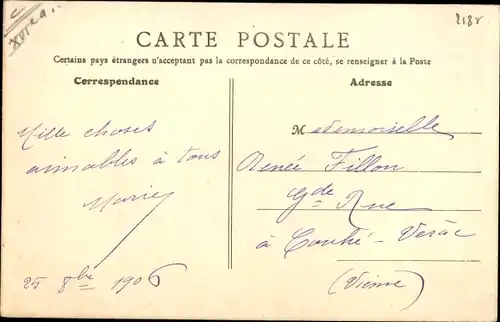 CARTE POSTALE
Certains pays étrangers n'acceptant pas la correspondance de ce côté, se renseigner à la Poste
Correspondance
Adresse
Mille choses
aimables à tous
Marie
25 8bre 1906
Mademoiselle
Renée Fillon
Gde Rue
à Couhé-Verac
(Vienne)